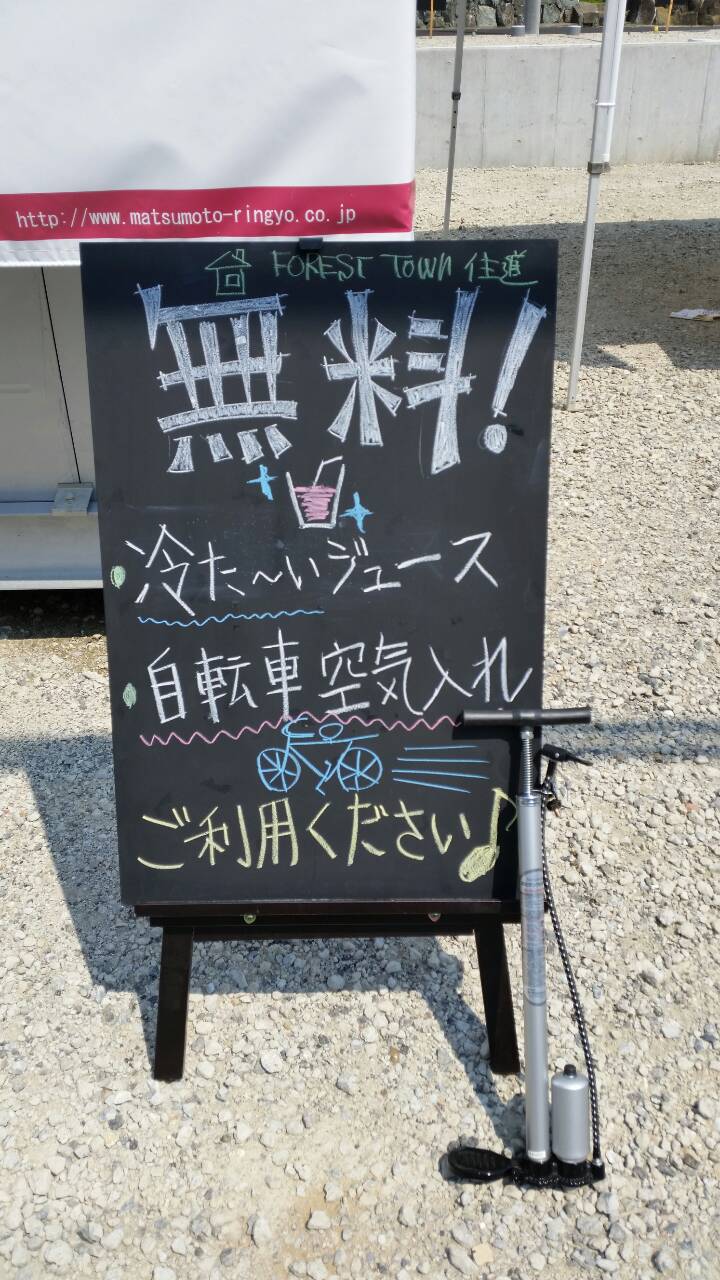 http://www.matsumoto-ringyo.co.jp
FOREST TOWN 住道
無料!
冷た〜いジュース
自転車空気入れ
ご利用ください♪